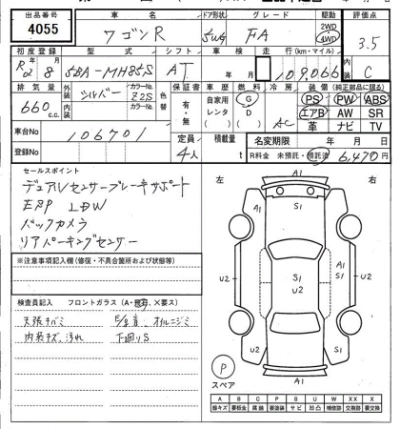 出品番号 車名 ドア形状 グレード 駆動 評価点
4055 ワゴンR 5W FA 2WD 4WD 3.5
初度登録 型式 シフト 車検 走行(km・マイル) 内装
R2 年 8 月 5BA-MH85S AT 年 月 109,066 C
排気量 外装 シルバー カラーNo. Z2S 色替 保証書 車歴 燃料 冷房 装備(純正部品に限る)
660 c.c. 内装 カラーNo. 有・無 自家用 レンタ ( ) G D AC PS PW ABS
エアB AW SR
革 ナビ TV
車台No 106701 定員 4人 積載量 t 名変期限 年 月 日
登録No R料金 未預託・預託済 6,470円
セールスポイント
デュアルセンサーブレーキサポート
ESP LDW
バックカメラ
リアパーキングセンサー
※注意事項記入欄(修復・不具合箇所および状態等)
検査員記入 フロントガラス(A・飛石、×要ス)
天張キバミ オイルニジミ
内装キズ、汚れ 下廻りS
左 右
A1 S1
A1
U2 S1 S1 U2
U2 S1
U2 S1
A1
P
スペア
A B C P S U W X XX